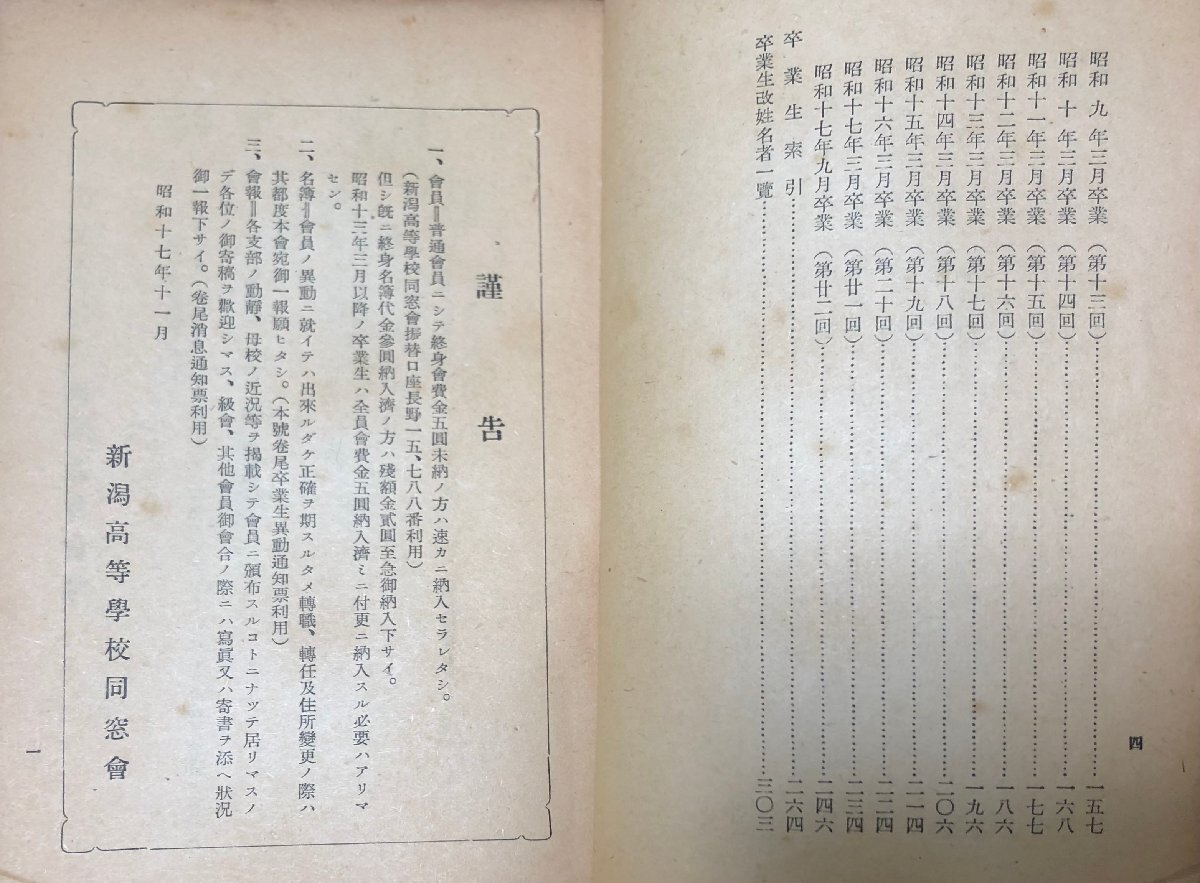 昭和 九 年三月卒業 (第十三回)……一五七
昭和 十 年三月卒業 (第十四回)……一六八
昭和十一年三月卒業 (第十五回)……一七七
昭和十二年三月卒業 (第十六回)……一八六
昭和十三年三月卒業 (第十七回)……一九六
昭和十四年三月卒業 (第十八回)……二〇六
昭和十五年三月卒業 (第十九回)……二一四
昭和十六年三月卒業 (第二十回)……二二四
昭和十七年三月卒業 (第廿一回)……二三四
昭和十七年九月卒業 (第廿二回)……二四六
卒業生索引……二六四
卒業生改姓名者一覽……三〇三
四
謹告
一、會員‖普通會員ニシテ終身會費金五圓未納ノ方ハ速カニ納入セラレタシ。
(新潟高等學校同窓會振替口座長野一五、七八八番利用)
但シ既ニ終身名簿代金參圓納入濟ノ方ハ殘額金貳圓至急御納入下サイ。
昭和十三年三月以降ノ卒業生ハ全員會費金五圓納入濟ミニ付更ニ納入スル必要ハアリマ
セン。
二、名簿‖會員ノ異動ニ就イテハ出來ルダケ正確ヲ期スルタメ轉職、轉任及住所變更ノ際ハ
其都度本會宛御一報願ヒタシ。(本號卷尾卒業生異動通知票利用)
三、會報‖各支部ノ動靜、母校ノ近況等ヲ揭載シテ會員ニ頒布スルコトニナツテ居リマスノ
デ各位ノ御寄稿ヲ歡迎シマス、級會、其他會員御會合ノ際ニハ寫眞又ハ寄書ヲ添ヘ狀況
御一報下サイ。(卷尾消息通知票利用)
昭和十七年十一月
新潟高等學校同窓會
一